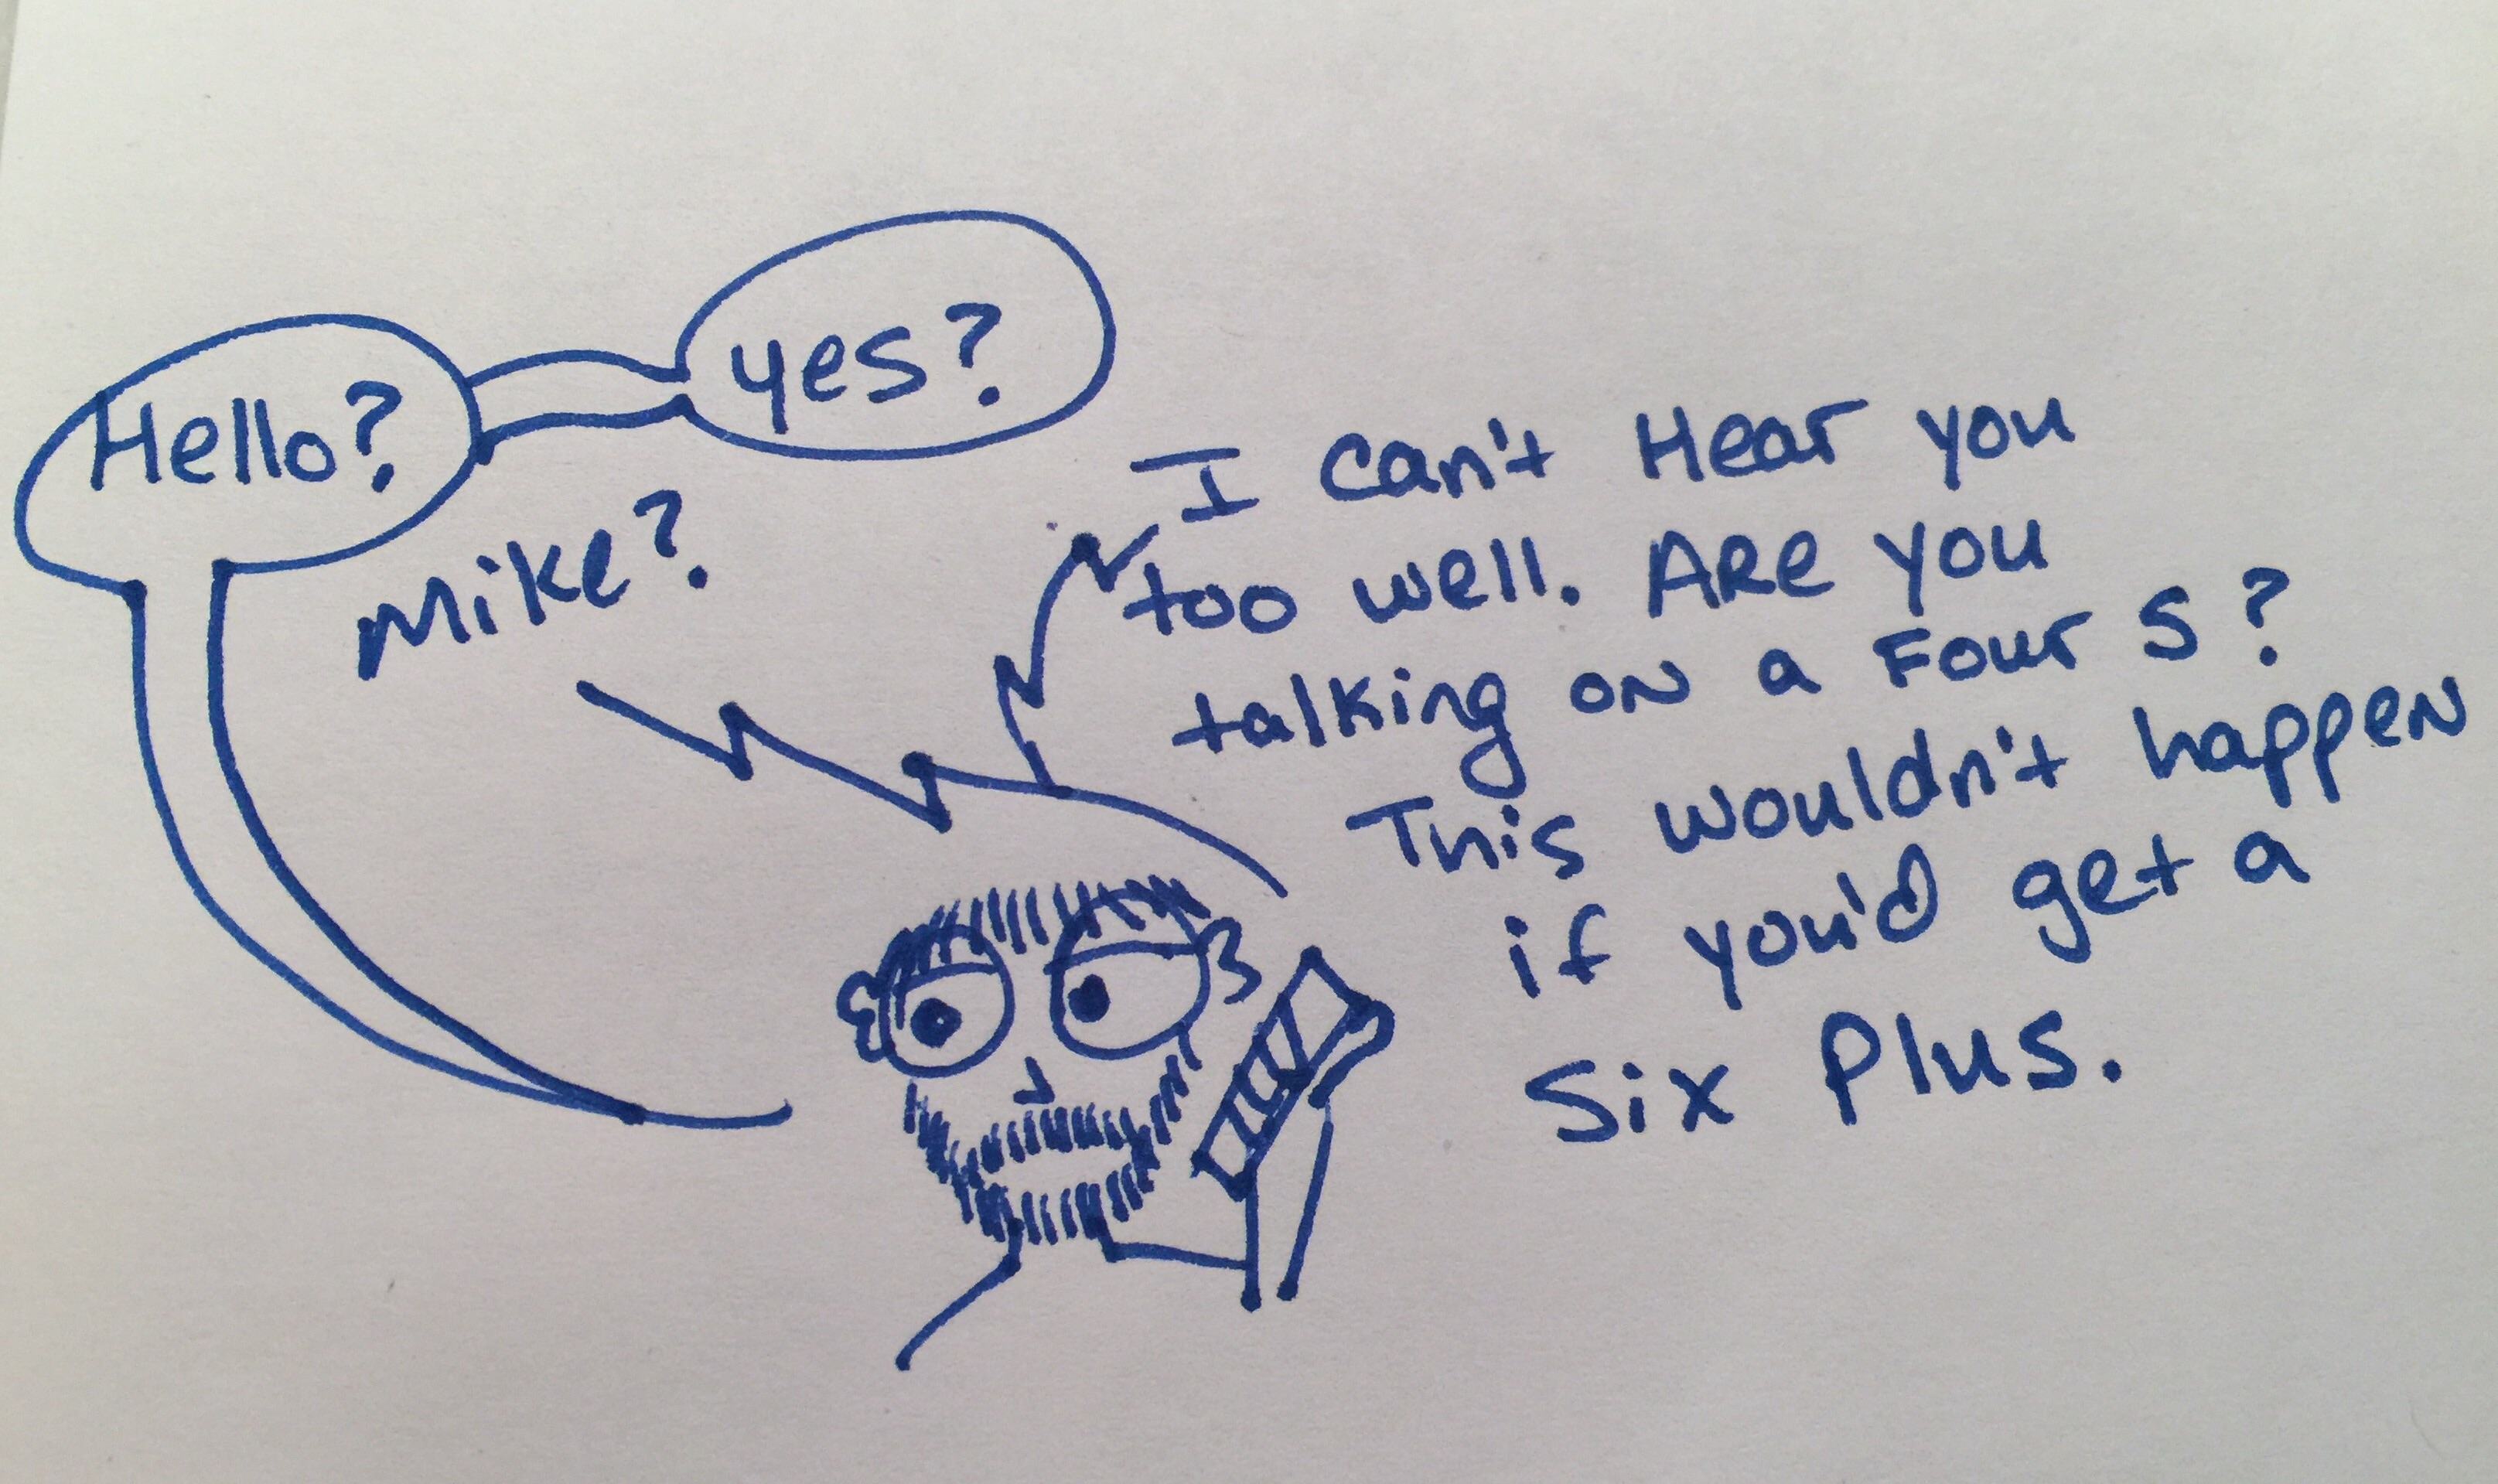 Hello?
Mike?
yes?
I can't Hear you
too well. ARe you
talking oN a Four S?
This wouldn't happeN
if you'd get a
Six Plus.